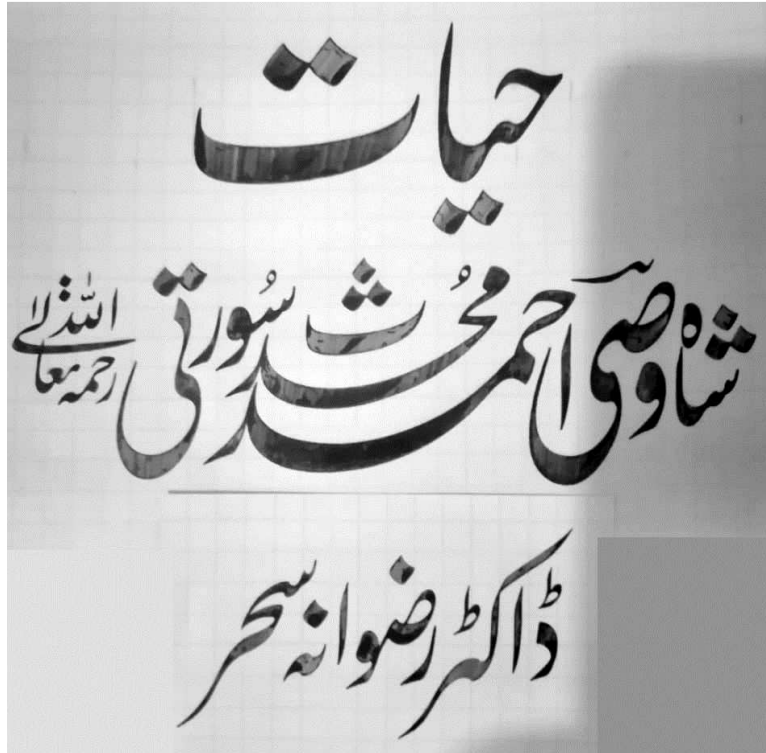 حیات
شاہ وصی احمد محدث سورتی رحمۃ اللہ تعالیٰ
ڈاکٹر رضوانہ سحر